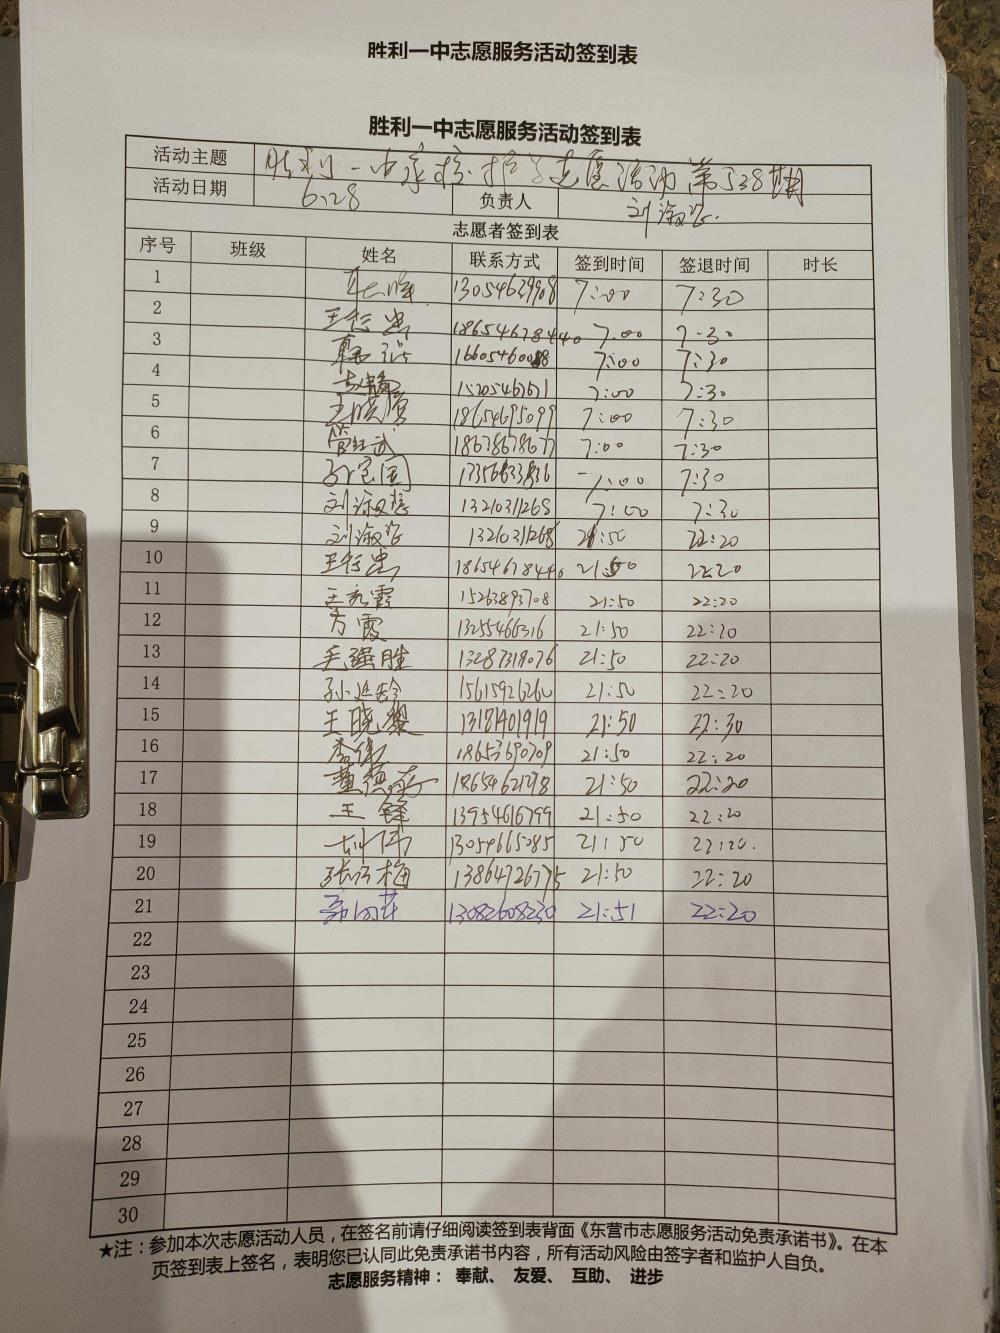 胜利一中志愿服务活动签到表
胜利一中志愿服务活动签到表
活动主题 胜利一中家校 护学志愿活动第538期
活动日期 6.28 负责人 刘淑
志愿者签到表
序号 班级 姓名 联系方式 签到时间 签退时间 时长
1 13054639908 7:00 7:30
2 王 忠 18654678440 7:00 7:30
3 7:00 7:30
4 7:00 7:30
5 王晓 18654695099 7:00 7:30
6 管 武 18678678677 7:00 7:30
7 孙 国 7:00 7:30
8 刘淑 13210311268 7:00 7:30
9 刘淑 13210311268 21:50 22:20
10 王 忠 18654678440 21:50 22:20
11 王 霞 15263893708 21:50 22:20
12 方霞 13255466316 21:50 22:20
13 毛强胜 13287318076 21:50 22:20
14 孙延玲 15615926260 21:50 22:20
15 王晓 13181401919 21:50 22:30
16 李 18653690709 21:50 22:20
17 董 18654621298 21:50 22:20
18 王锋 13954616799 21:50 22:20
19 刘伟 13054665085 21:50 22:20
20 张 梅 13864726775 21:50 22:20
21 13082608230 21:51 22:20
22
23
24
25
26
27
28
29
30
★注：参加本次志愿活动人员，在签名前请仔细阅读签到表背面《东营市志愿服务活动免责承诺书》。在本
页签到表上签名，表明您已认同此免责承诺书内容，所有活动风险由签字者和监护人自负。
志愿服务精神： 奉献、 友爱、 互助、 进步